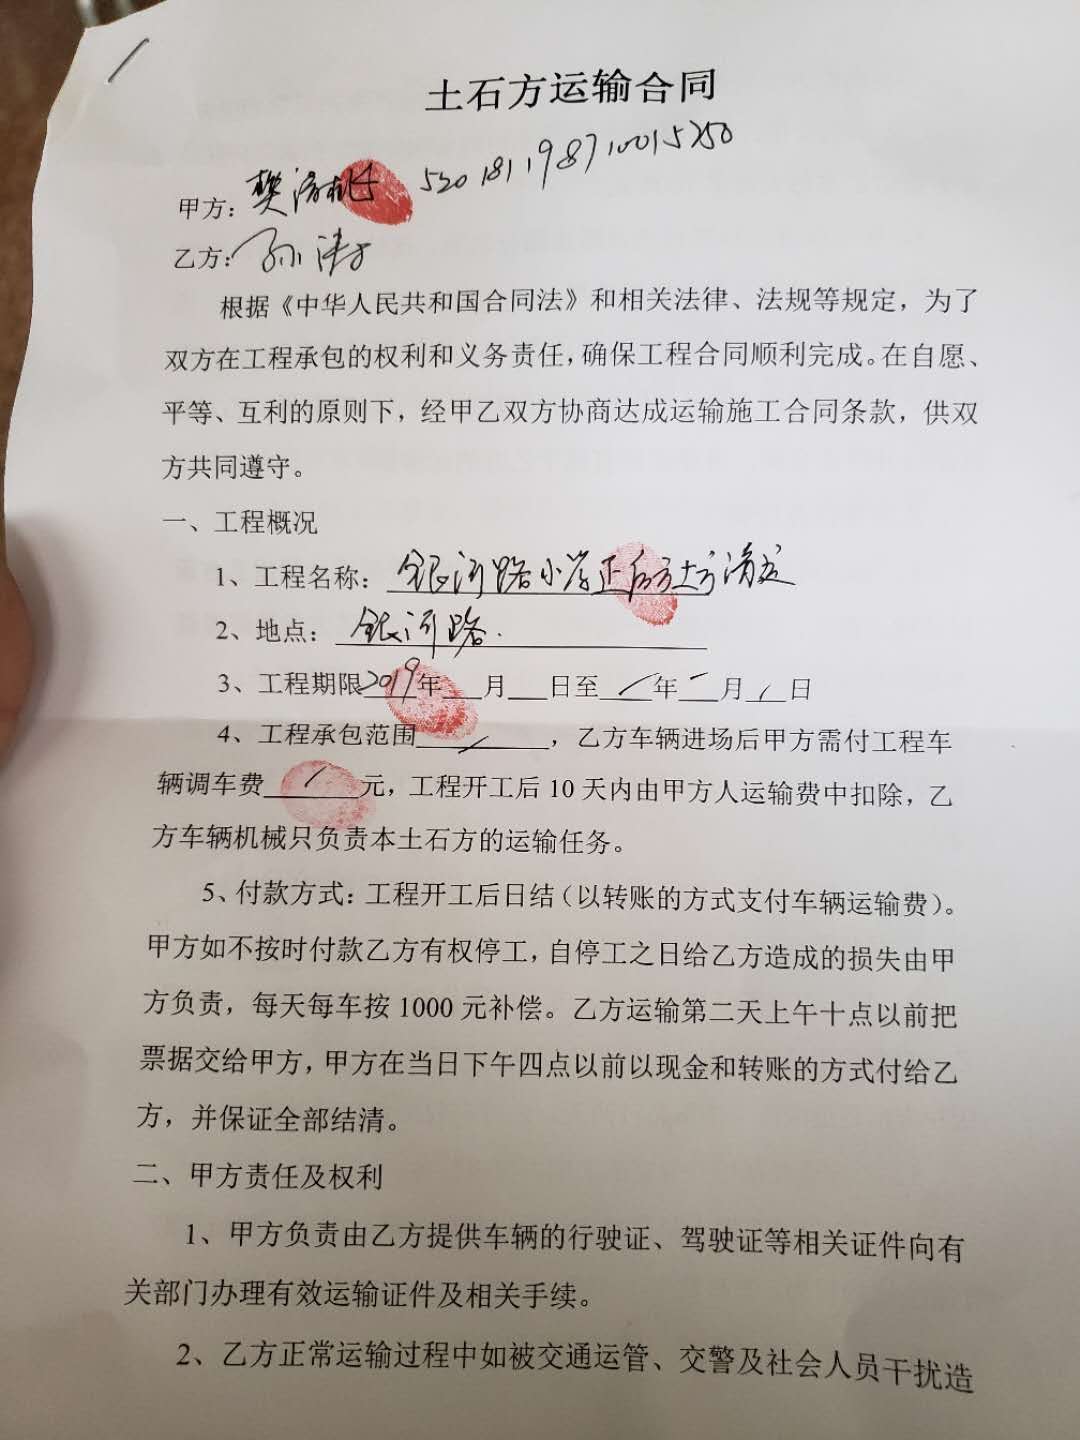 土石方运输合同
甲方：樊 520181198710015250
乙方：孙涛
根据《中华人民共和国合同法》和相关法律、法规等规定，为了
双方在工程承包的权利和义务责任，确保工程合同顺利完成。在自愿、
平等、互利的原则下，经甲乙双方协商达成运输施工合同条款，供双
方共同遵守。
一、工程概况
1、工程名称：银河路小学正后方土方清运
2、地点：银河路.
3、工程期限2019年___月___日至 / 年 / 月 / 日
4、工程承包范围 / ，乙方车辆进场后甲方需付工程车
辆调车费 / 元，工程开工后10天内由甲方人运输费中扣除，乙
方车辆机械只负责本土石方的运输任务。
5、付款方式：工程开工后日结（以转账的方式支付车辆运输费）。
甲方如不按时付款乙方有权停工，自停工之日给乙方造成的损失由甲
方负责，每天每车按1000元补偿。乙方运输第二天上午十点以前把
票据交给甲方，甲方在当日下午四点以前以现金和转账的方式付给乙
方，并保证全部结清。
二、甲方责任及权利
1、甲方负责由乙方提供车辆的行驶证、驾驶证等相关证件向有
关部门办理有效运输证件及相关手续。
2、乙方正常运输过程中如被交通运管、交警及社会人员干扰造